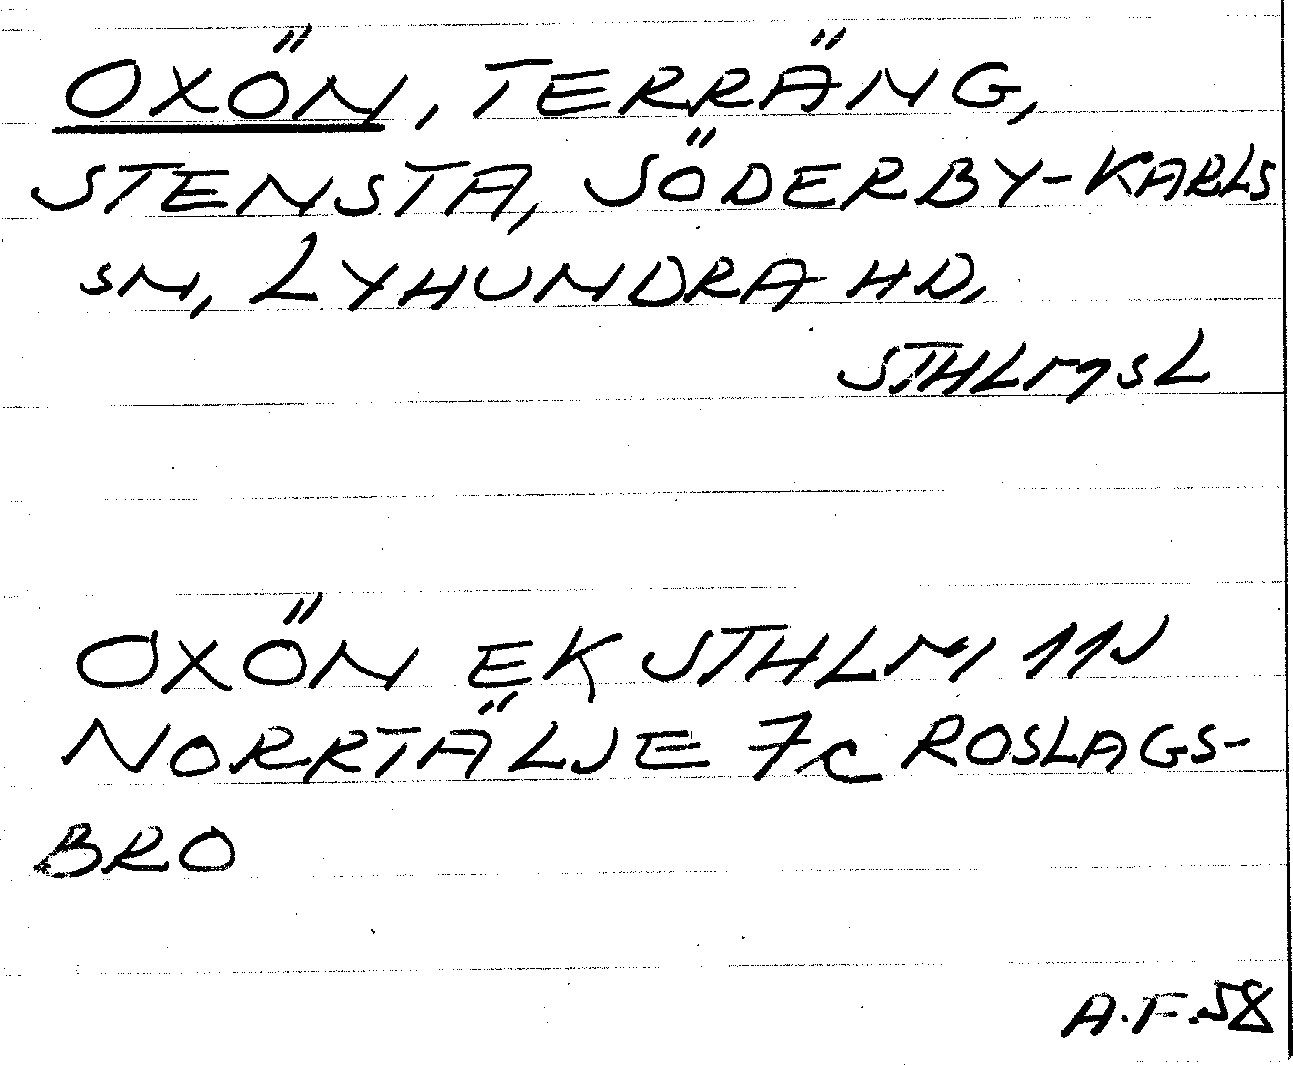 OXÖN, TERRÄNG,
STENSTA, SÖDERBY-KARLS
SN, LYHUNDRA HD,
STHLMSL
OXÖN EK STHLM 11N
NORRTÄLJE 7c ROSLAGS-
BRO
A.F.58